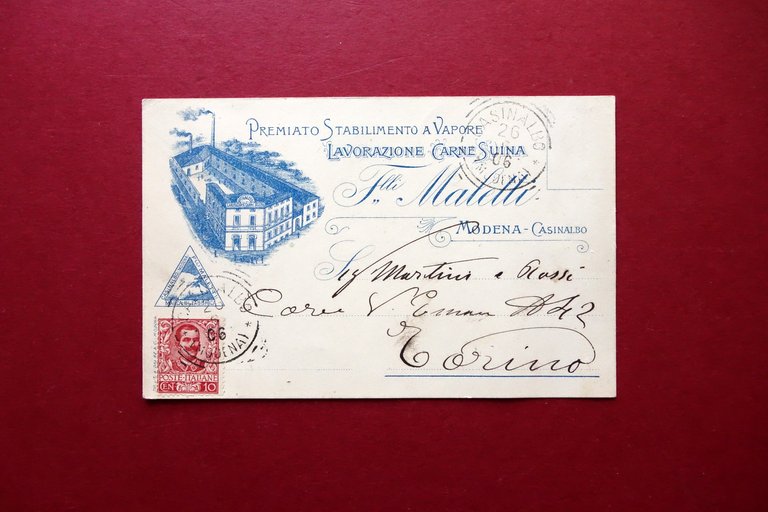 PREMIATO STABILIMENTO A VAPORE
LAVORAZIONE CARNE SUINA
F.lli Maletti
MODENA - CASINALBO
CASINALBO
26
06
(MODENA)
Sig Martini e Rossi
Corso V. Eman
Torino
06
(MODENA)
POSTE·ITALIANE
CEN 10